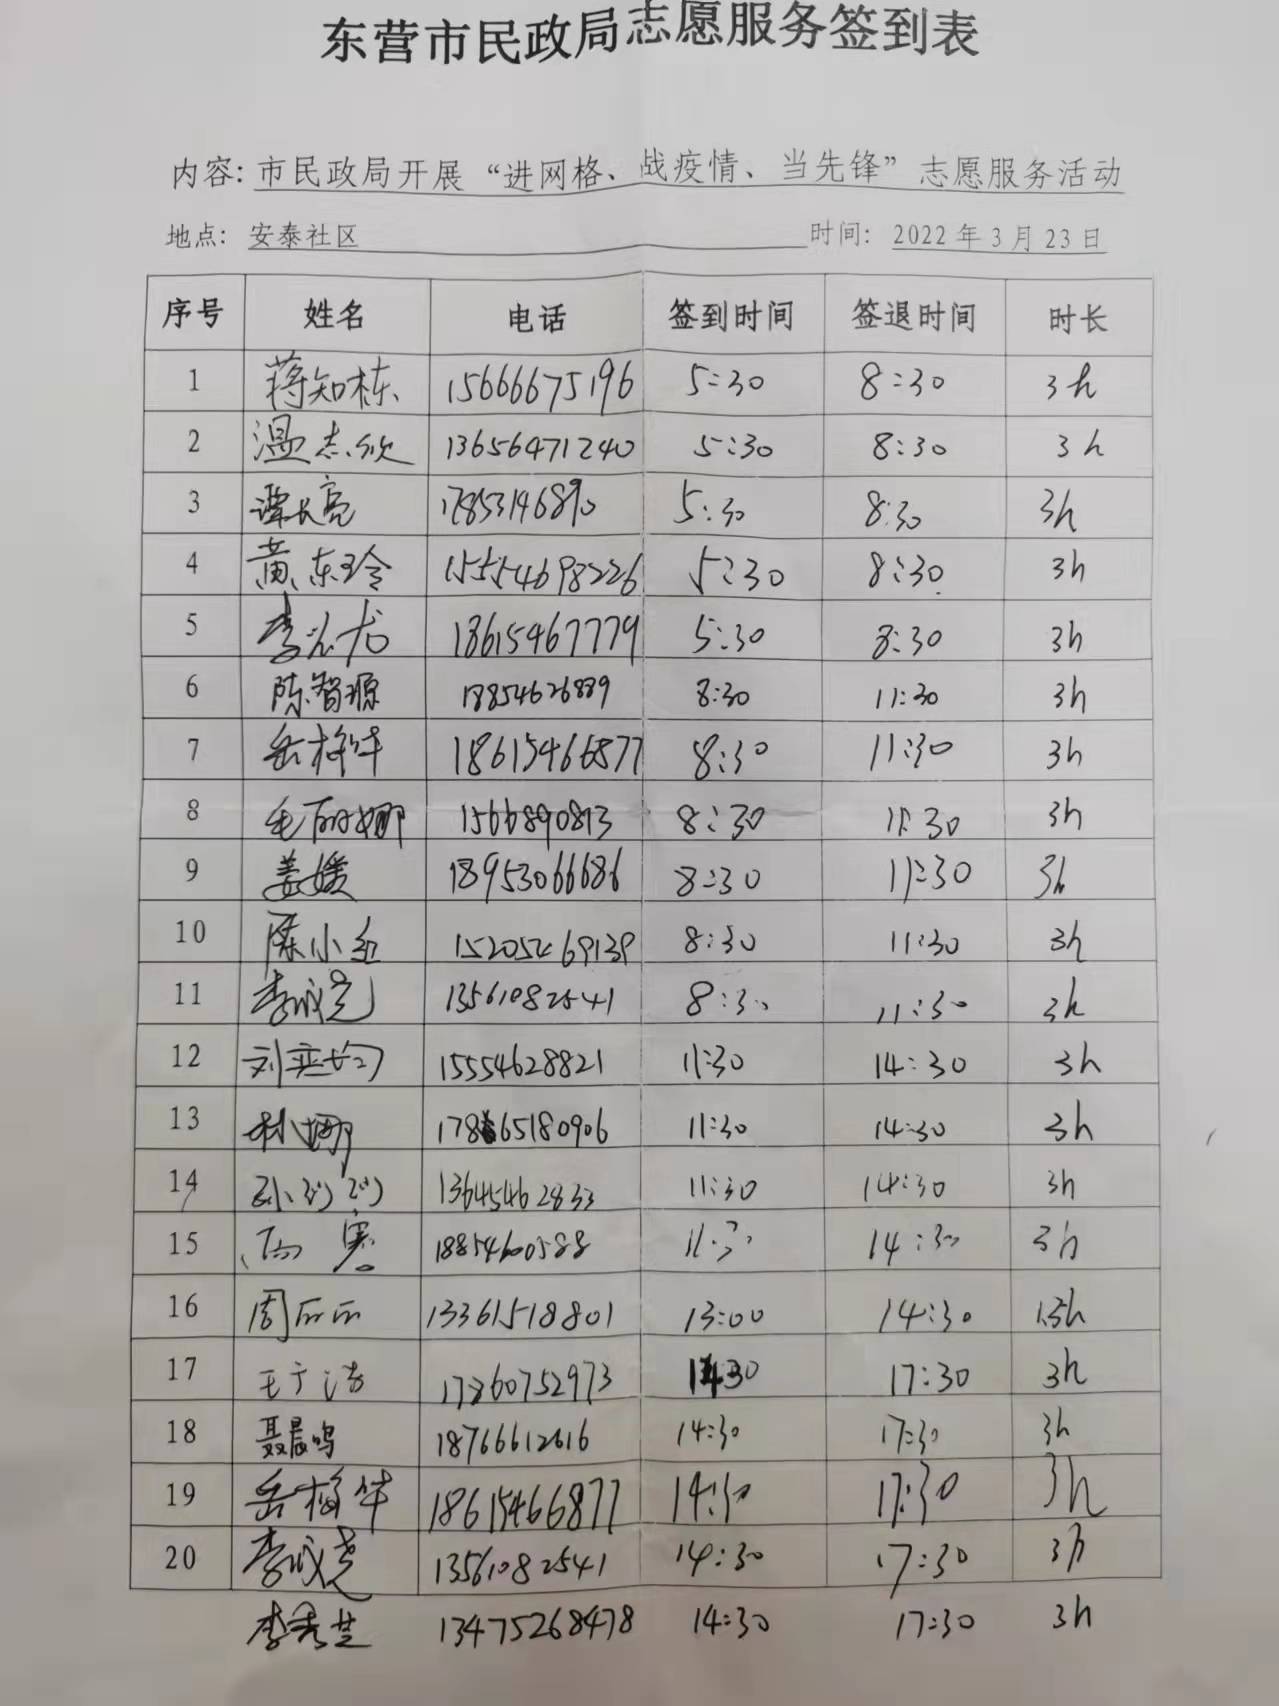 东营市民政局志愿服务签到表
内容: 市民政局开展“进网格、战疫情、当先锋”志愿服务活动
地点: 安泰社区 时间: 2022年3月23日
序号 姓名 电话 签到时间 签退时间 时长
1 蒋知栋 15666675196 5:30 8:30 3h
2 温志欣 13656471240 5:30 8:30 3h
3 谭长亮 17853146890 5:30 8:30 3h
4 黄东玲 15554698226 5:30 8:30 3h
5 李兴龙 18615467779 5:30 8:30 3h
6 陈智源 18854626889 8:30 11:30 3h
7 岳梅华 18615466877 8:30 11:30 3h
8 毛丽娜 1566890813 8:30 11:30 3h
9 姜媛 18953066686 8:30 11:30 3h
10 陈小红 15205469139 8:30 11:30 3h
11 李成尧 13561082541 8:30 11:30 3h
12 刘奕 15554628821 11:30 14:30 3h
13 林娜 17865180906 11:30 14:30 3h
14 孙 13645462833 11:30 14:30 3h
15 18854600588 11:30 14:30 3h
16 周丽丽 13361518801 13:00 14:30 1.5h
17 王宁涛 17260752973 14:30 17:30 3h
18 聂晨鸣 18766612616 14:30 17:30 3h
19 岳梅华 18615466877 14:30 17:30 3h
20 李成尧 13561082541 14:30 17:30 3h
李秀芝 13475268478 14:30 17:30 3h